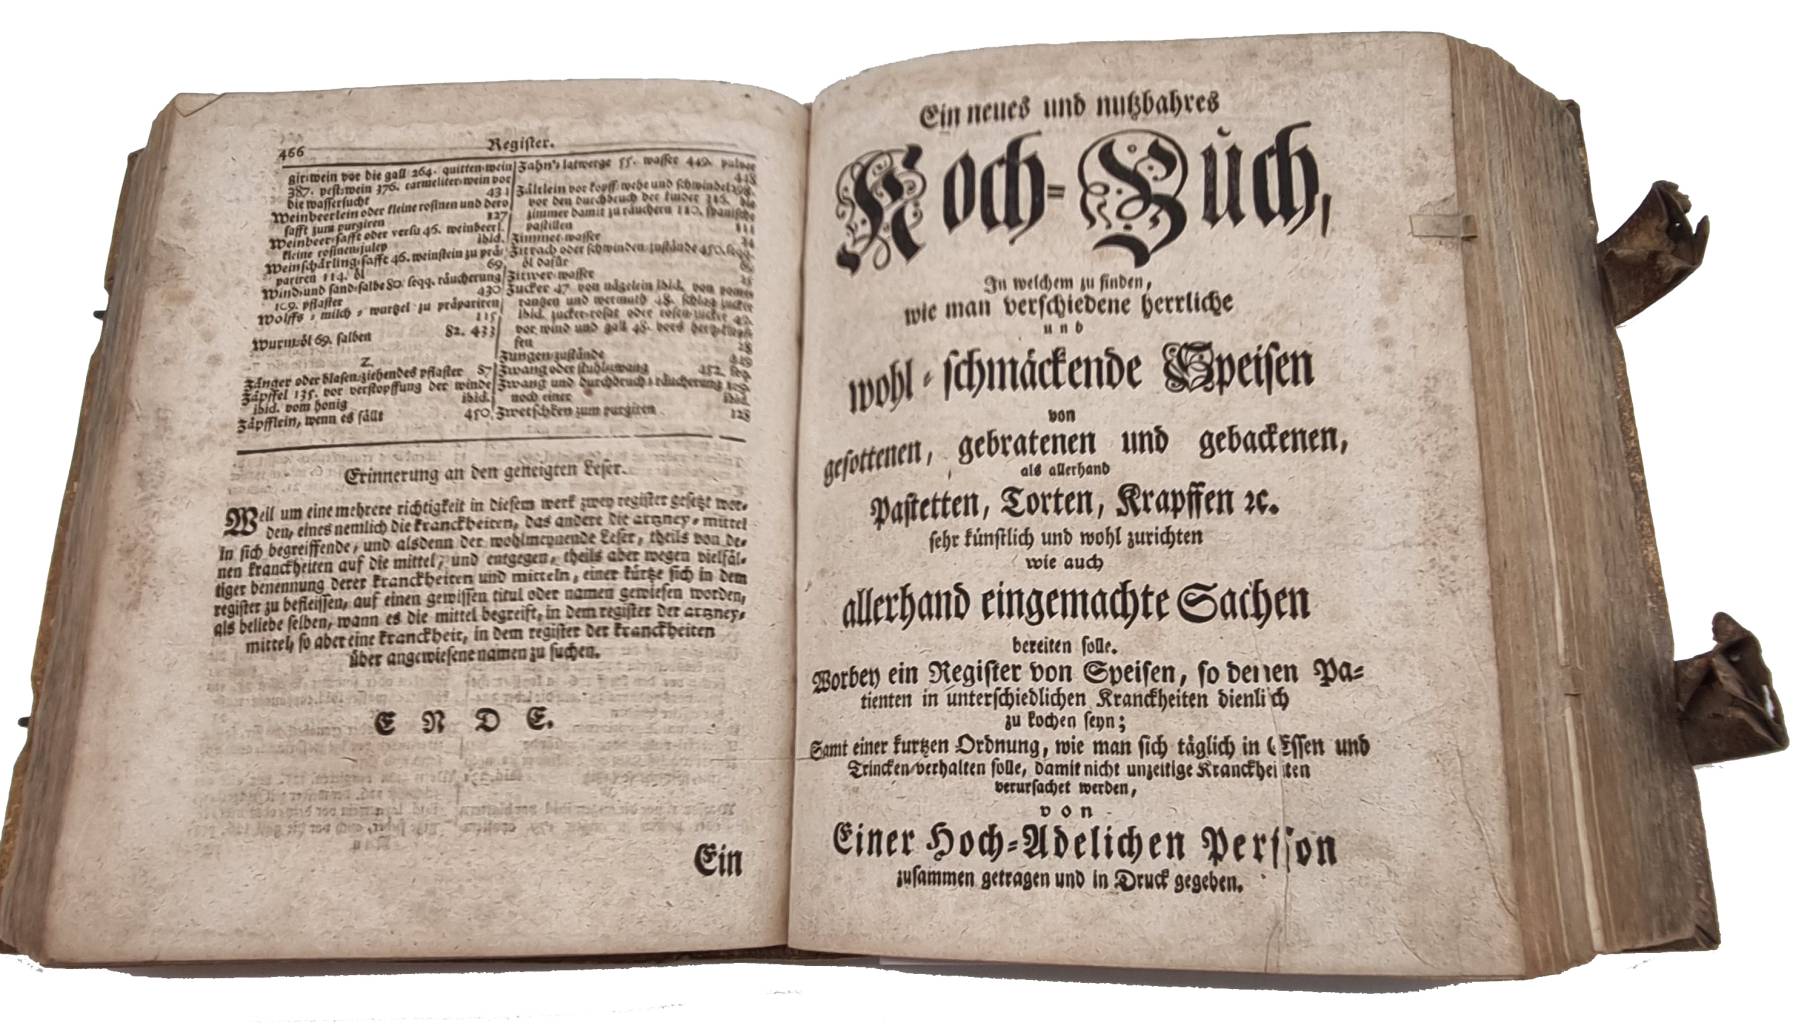 466
Register.
gir-wein vor die gall 264. quitten-wein
387. pest-wein 376. carmeliter-wein vor
die wassersucht 431
Weinbeerlein oder kleine rosinen und dero
safft zum purgiren 127
Weinbeer-safft oder versu 46. weinbeerl.
kleine rosinen-julep ibid.
Weinschärling-safft 46. weinstein zu prä-
pariren 114. öl 69
Wind-und sand-salbe 80. seqq. räucherung
109. pflaster 430
Wolffs-milch-wurtzel zu präpariren
115
Wurm-öl 69. salben 82. 433
Z.
Zänger oder blasen-ziehendes pflaster 87
Zäpffel 135. vor verstopffung der winde
ibid. vom honig ibid.
Zäpfflein, wenn es fällt 450
Zahn's latwerge 55. wasser 449. pulver
448
Zältlein vor kopff-wehe und schwindel 298.
vor den durchbruch der kinder 316. die
zimmer damit zu räuchern 110. spanische
pastillen 111
Zimmet-wasser 24
Zittrach oder schwinden-zustände 450. seqq.
öl dafür
Zitwer-wasser 25
Zucker 47. von nägelein ibid. von pomer-
rantzen und wermuth 48. schlag-zucker
ibid. zucker-rosat oder rosen-zucker 49.
vor wind und gall 48. vors hertz-klopf-
fen 28
Zungen-zustände 449
Zwang oder stuhl-zwang 452. seq.
Zwang und durchbruch-räucherung 109.
noch einer ibid.
Zwetschken zum purgiren 128
Erinnerung an den geneigten Leser.
Weil um eine mehrere richtigkeit in diesem werk zwey register gesetzt wor-
den, eines nemlich die kranckheiten, das andere die artzney-mittel
in sich begreiffende, und alsdenn der wohlmeynende Leser, theils von de-
nen kranckheiten auf die mittel, und entgegen, theils aber wegen vielfäl-
tiger benennung derer kranckheiten und mitteln, einer kürtze sich in dem
register zu befleissen, auf einen gewissen titul oder namen gewiesen worden,
als beliebe selben, wann es die mittel begreift, in dem register der artzney-
mittel, so aber eine kranckheit, in dem register der kranckheiten
über angewiesene namen zu suchen.
E N D E.
Ein
Ein neues und nutzbahres
Koch-Buch,
In welchem zu finden,
wie man verschiedene herrliche
und
wohl-schmäckende Speisen
von
gesottenen, gebratenen und gebackenen,
als allerhand
Pastetten, Torten, Krapffen ꝛc.
sehr künstlich und wohl zurichten
wie auch
allerhand eingemachte Sachen
bereiten solle.
Worbey ein Register von Speisen, so denen Pa-
tienten in unterschiedlichen Kranckheiten dienlich
zu kochen seyn;
Samt einer kurtzen Ordnung, wie man sich täglich in Essen und
Trincken verhalten solle, damit nicht unzeitige Kranckheiten
verursachet werden,
von
Einer Hoch-Adelichen Persson
zusammen getragen und in Druck gegeben.